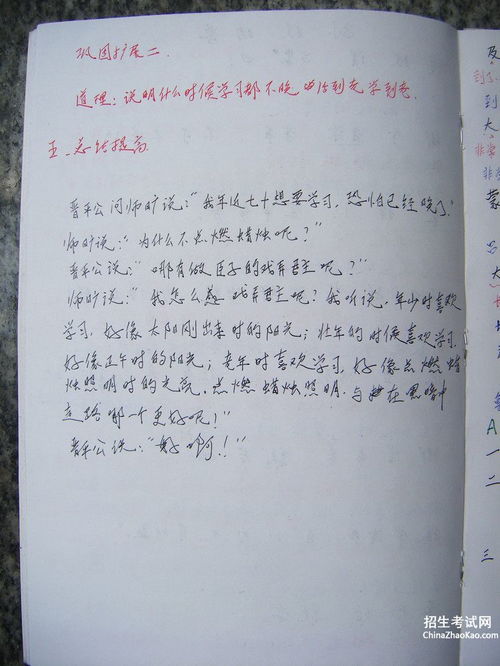 巩固扩展二.
道理：说明什么时候学习都不晚 活到老学到老.
五、总结提高
晋平公问师旷说：“我年近七十想要学习，恐怕已经晚了.”
师旷说：“为什么不点燃蜡烛呢？”
晋平公说：“哪有做臣子的戏弄君主呢？”
师旷说：“我怎么敢戏弄君主呢？我听说，年少时喜欢
学习，好像太阳刚出来时的阳光；壮年的时候喜欢学习
好像正午时的阳光；老年时喜欢学习，好像点燃蜡
烛照明时的光亮，点燃蜡烛照明，与在黑暗中
走路哪一个更好呢！”
晋平公说：“好啊！”
及
到了
到
大
非常
非常
蒙
大
A
一
二
三
招生考试网
ChinaZhaoKao.com